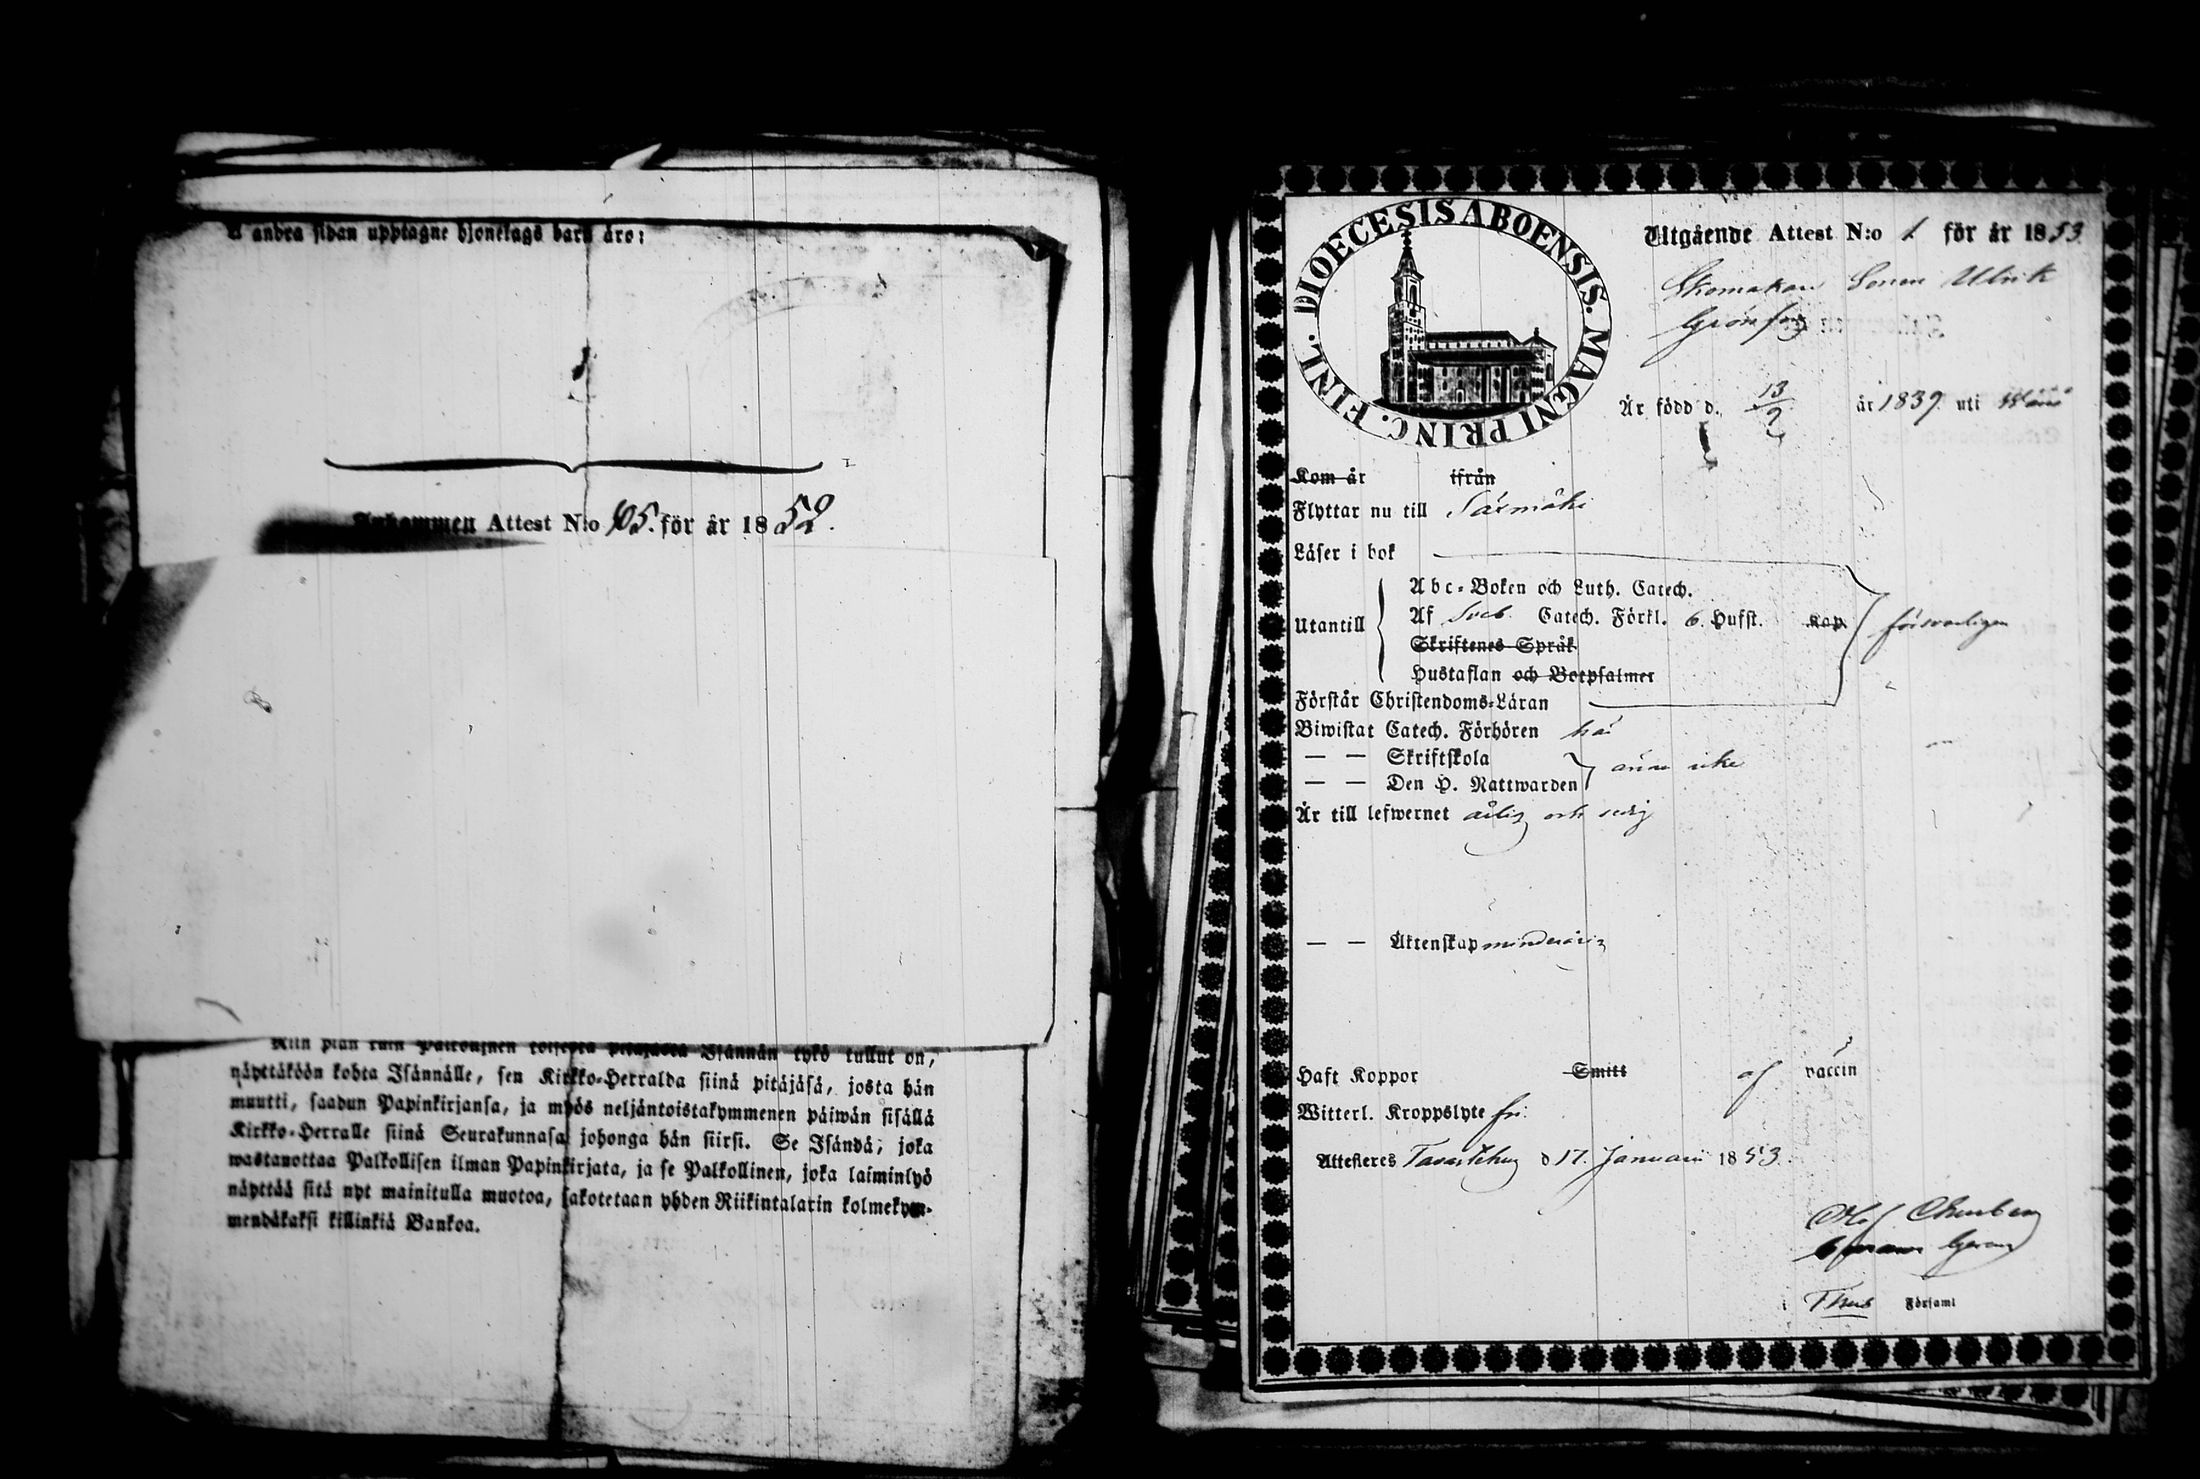 å andra sidan upptagne hjonelags barn äro:
Ankommen Attest N:o 65. för år 1852.
Niin pian kuin Palkoinen toisesta pitäjästä Isännän tykö tullut on,
näyttäköön kohta Isännälle, sen Kirkko-Herralda siinä pitäjäsä, josta hän
muutti, saadun Papinkirjansa, ja myös neljäntoistakymmenen päiwän sisällä
Kirkko-Herralle siinä Seurakunnasa johonga hän siirsi. Se Isändä, joka
wastanottaa Palkollisen ilman Papinkirjata, ja se Palkollinen, joka laiminlyö
näyttää sitä nyt mainitulla muotoa, sakotetaan yhden Riikintalarin kolmekym-
mendäkaksi killinkiä Bankoa.
DIOECESIS ABOENSIS. MAGNI PRINC. FINL.
Utgående Attest N:o 1 för år 1853
Skomakare Sonen Ulrik
Grönfors
Är född d. 13/9 år 1839 uti
Kom år ifrån
Flyttar nu till Säxmäki
Läser i bok
Utantill
Abc-Boken och Luth. Catech.
Af Sveb. Catech. Förkl. 6. Hufst. Kap.
Skriftenes Språk
Hustaflan och Botpsalmer
försvarligen
Förstår Christendoms-Läran
Biwistat Catech. Förhören här
— — Skriftskola
— — Den H. Nattwarden
ännu icke
Är till lefwernet ärlig och sedig
— — Äktenskap minderårig
Haft Koppor Smitt af vaccin
Witterl. Kroppslyte fri.
Attesteres Tavastehus d 17. Januarii 1853
Olof Churberg
i Thus Församl